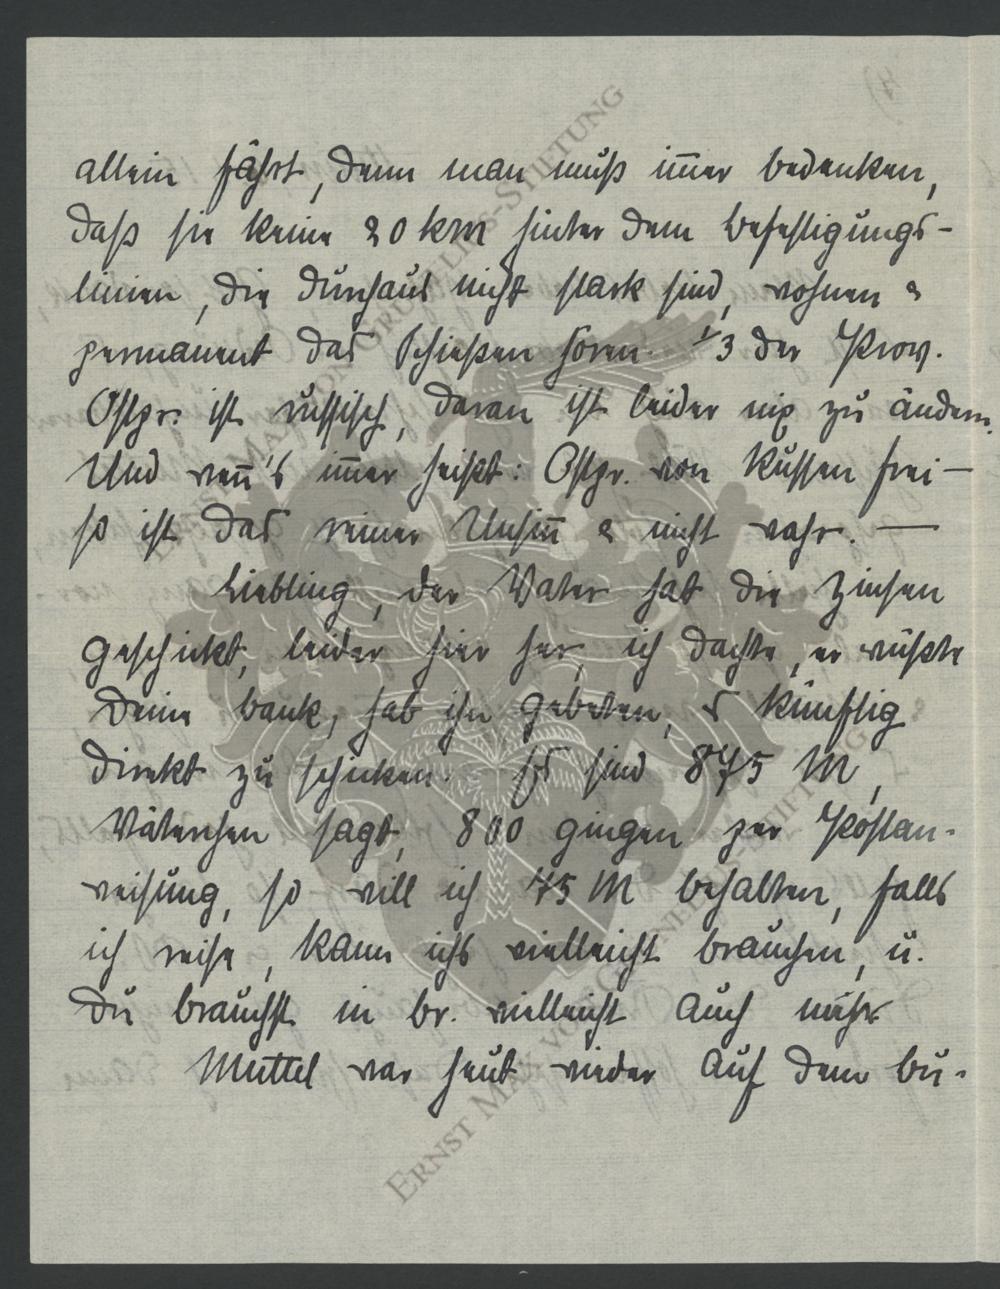 allein fährt, denn man muß im̅er bedenken,
daß sie keine 20 km hinter dem Befestigungs-
linien, die durchaus nicht stark sind, wohnen &
permanent das Schießen hören. 1/3 der Prov.
Ostpr. ist russisch, daran ist leider nix zu ändern.
Und wen̅'s im̅er heißt: Ostpr. von Russen frei —
so ist das reiner Unsin̅ & nicht wahr. —
Liebling, der Vater hat die Zinsen
geschickt, leider hier her, ich dachte, er wüßte
Deine Bank, hab ihn gebeten, es künftig
direkt zu schicken. Es sind 875 M,
Väterchen sagt, 800 gingen per Postan-
weisung, so will ich 75 M behalten, falls
ich reise, kann ichs vielleicht brauchen, u.
Du brauchst in Br. vielleicht auch mehr
Muttel war heut wieder auf dem Bu-
ERNST MAX VON GRUNELIUS-STIFTUNG
ERNST MAX VON GRUNELIUS-STIFTUNG